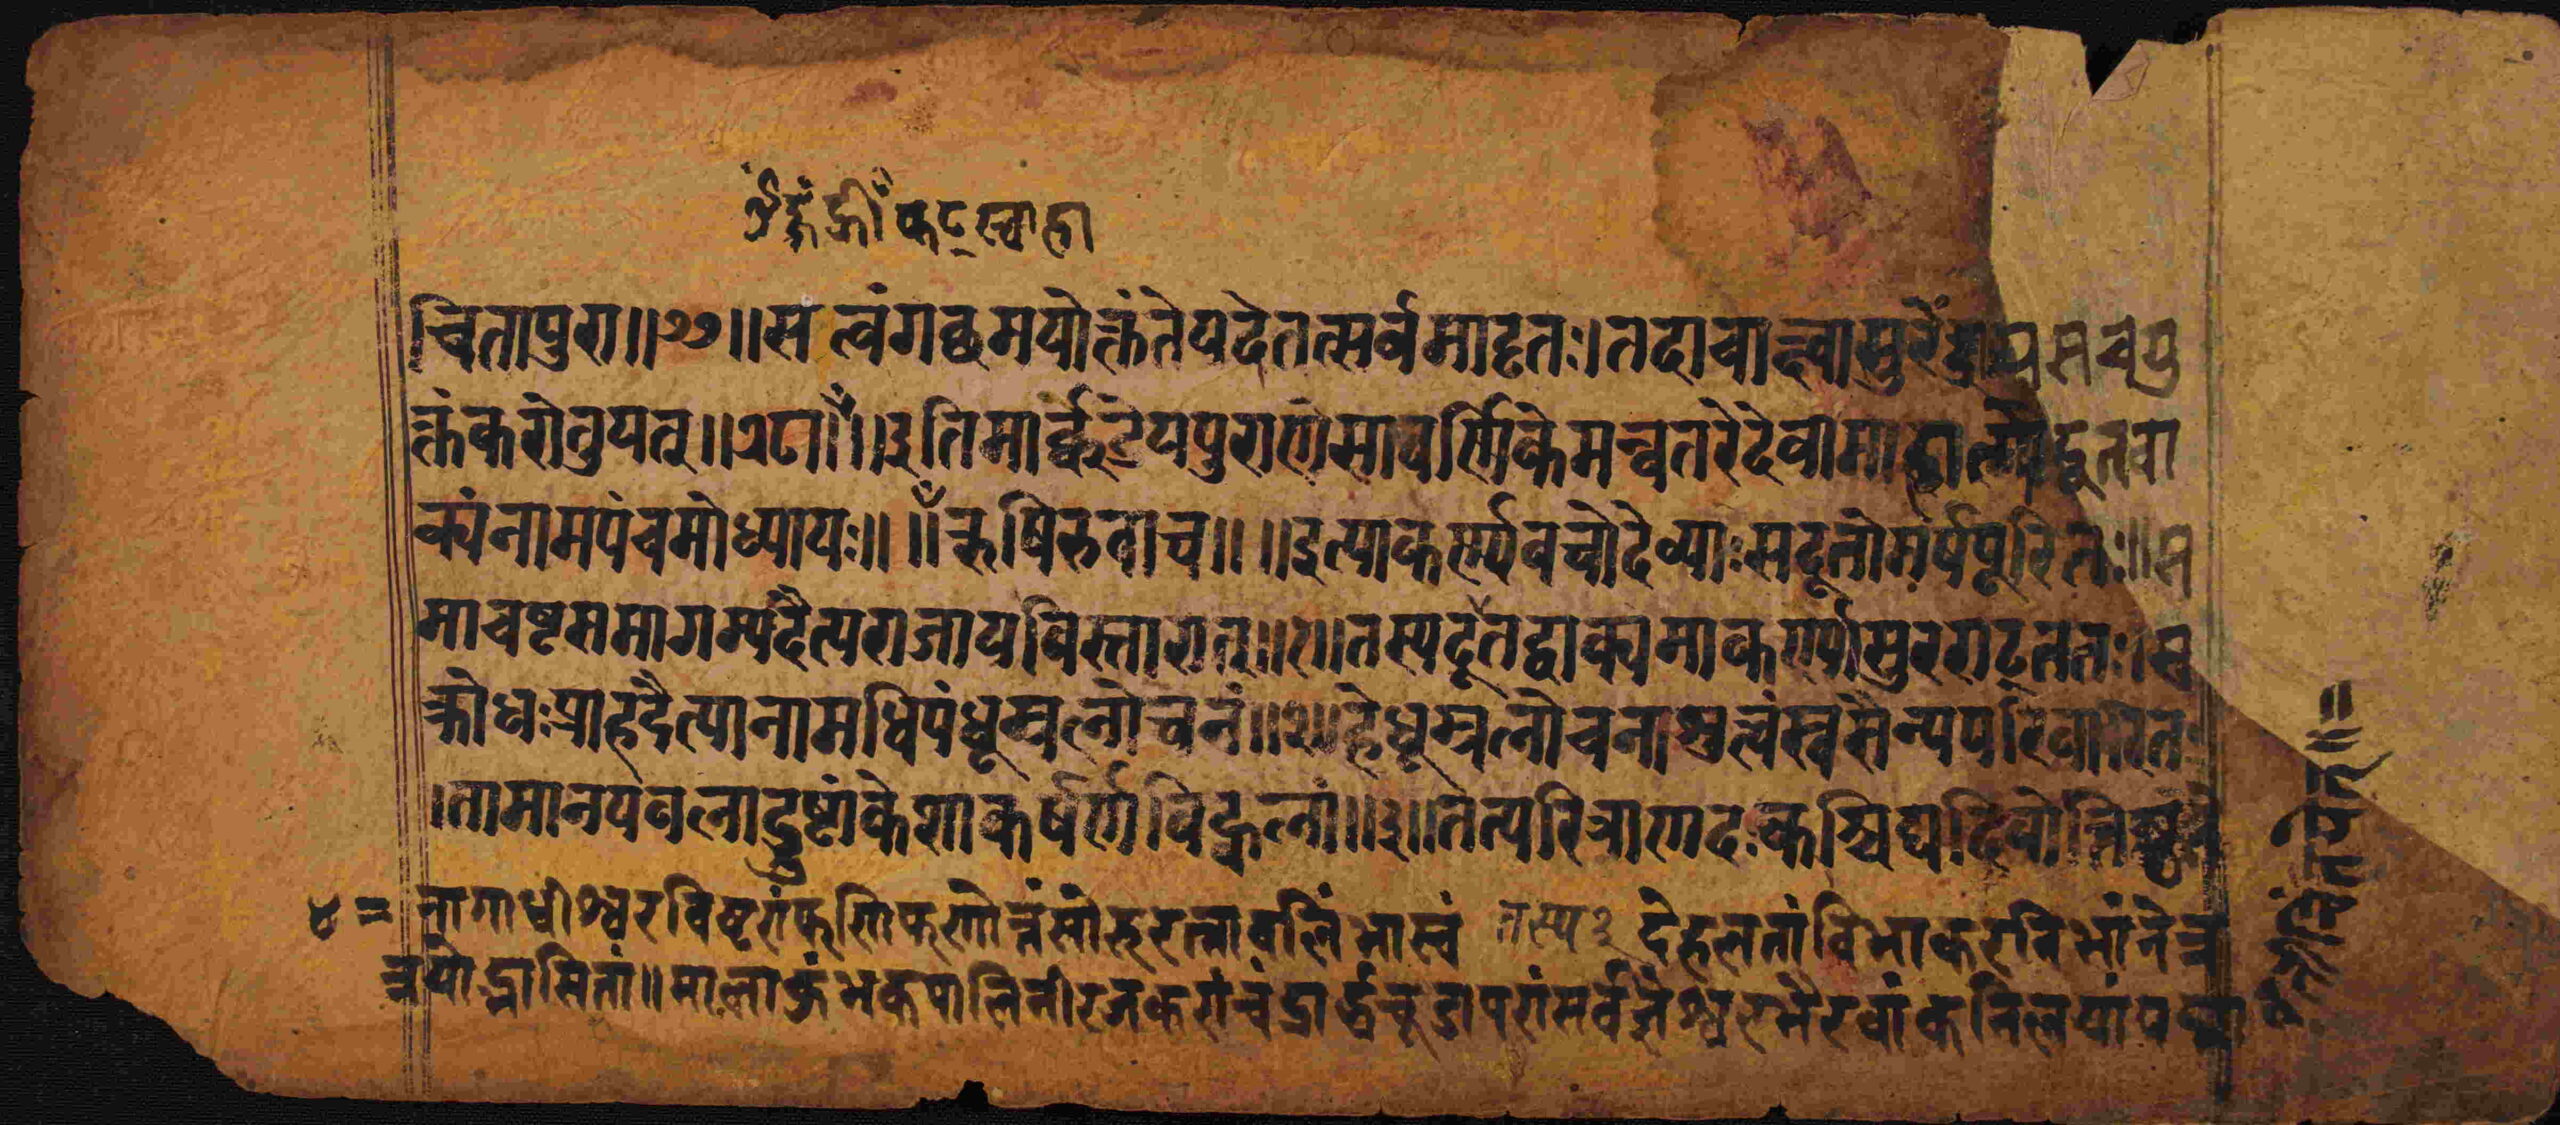 ऐं हूं ह्रीं फट् स्वाहा
चितापुरा॥७७॥स त्वंगछमयोक्तंतेयदेतत्सर्वमादृतः।तदाचाक्ष्वासुरेंद्रायसचयु
क्तंकरोतुयत्॥७८॥ँ॥इतिमार्कंडेयपुराणेसावर्णिकेमन्वतरेदेवीमाहात्म्येदूतवा
क्यंनामपंचमोध्यायः॥ ॥ँऋषिरुवाच॥ ॥इत्याकर्ण्यवचोदेव्याःसदूतोमर्षपूरितः॥स
माचष्टसमागम्यदैत्यराजायविस्तारात्॥१॥तस्यदूतद्वाक्यमाकर्ण्यासुरराट्ततः।स
क्रोधःप्राहदैत्यानामधिपंधूम्रलोचनं॥२॥हेधूम्रलोचनाशुत्वंस्वसैन्यपरिवारितः
।तामानयबलाद्दुष्टांकेशाकर्षणविह्वलां॥३॥तत्परित्राणदःकश्चिद्यदिवोत्तिष्ठते
४ = नागाधीश्वरविष्टरांफणिफणोत्तंसोरुरत्नावलिंभास्वं तस्य २ देहलतांविभाकरनिभांनेत्र
त्रयोद्भासितां॥मालाकुंभकपालिनीरजकरांचंद्रार्द्धचूडापरांसर्वज्ञेश्वरभैरवांकनिलयांपद्मा